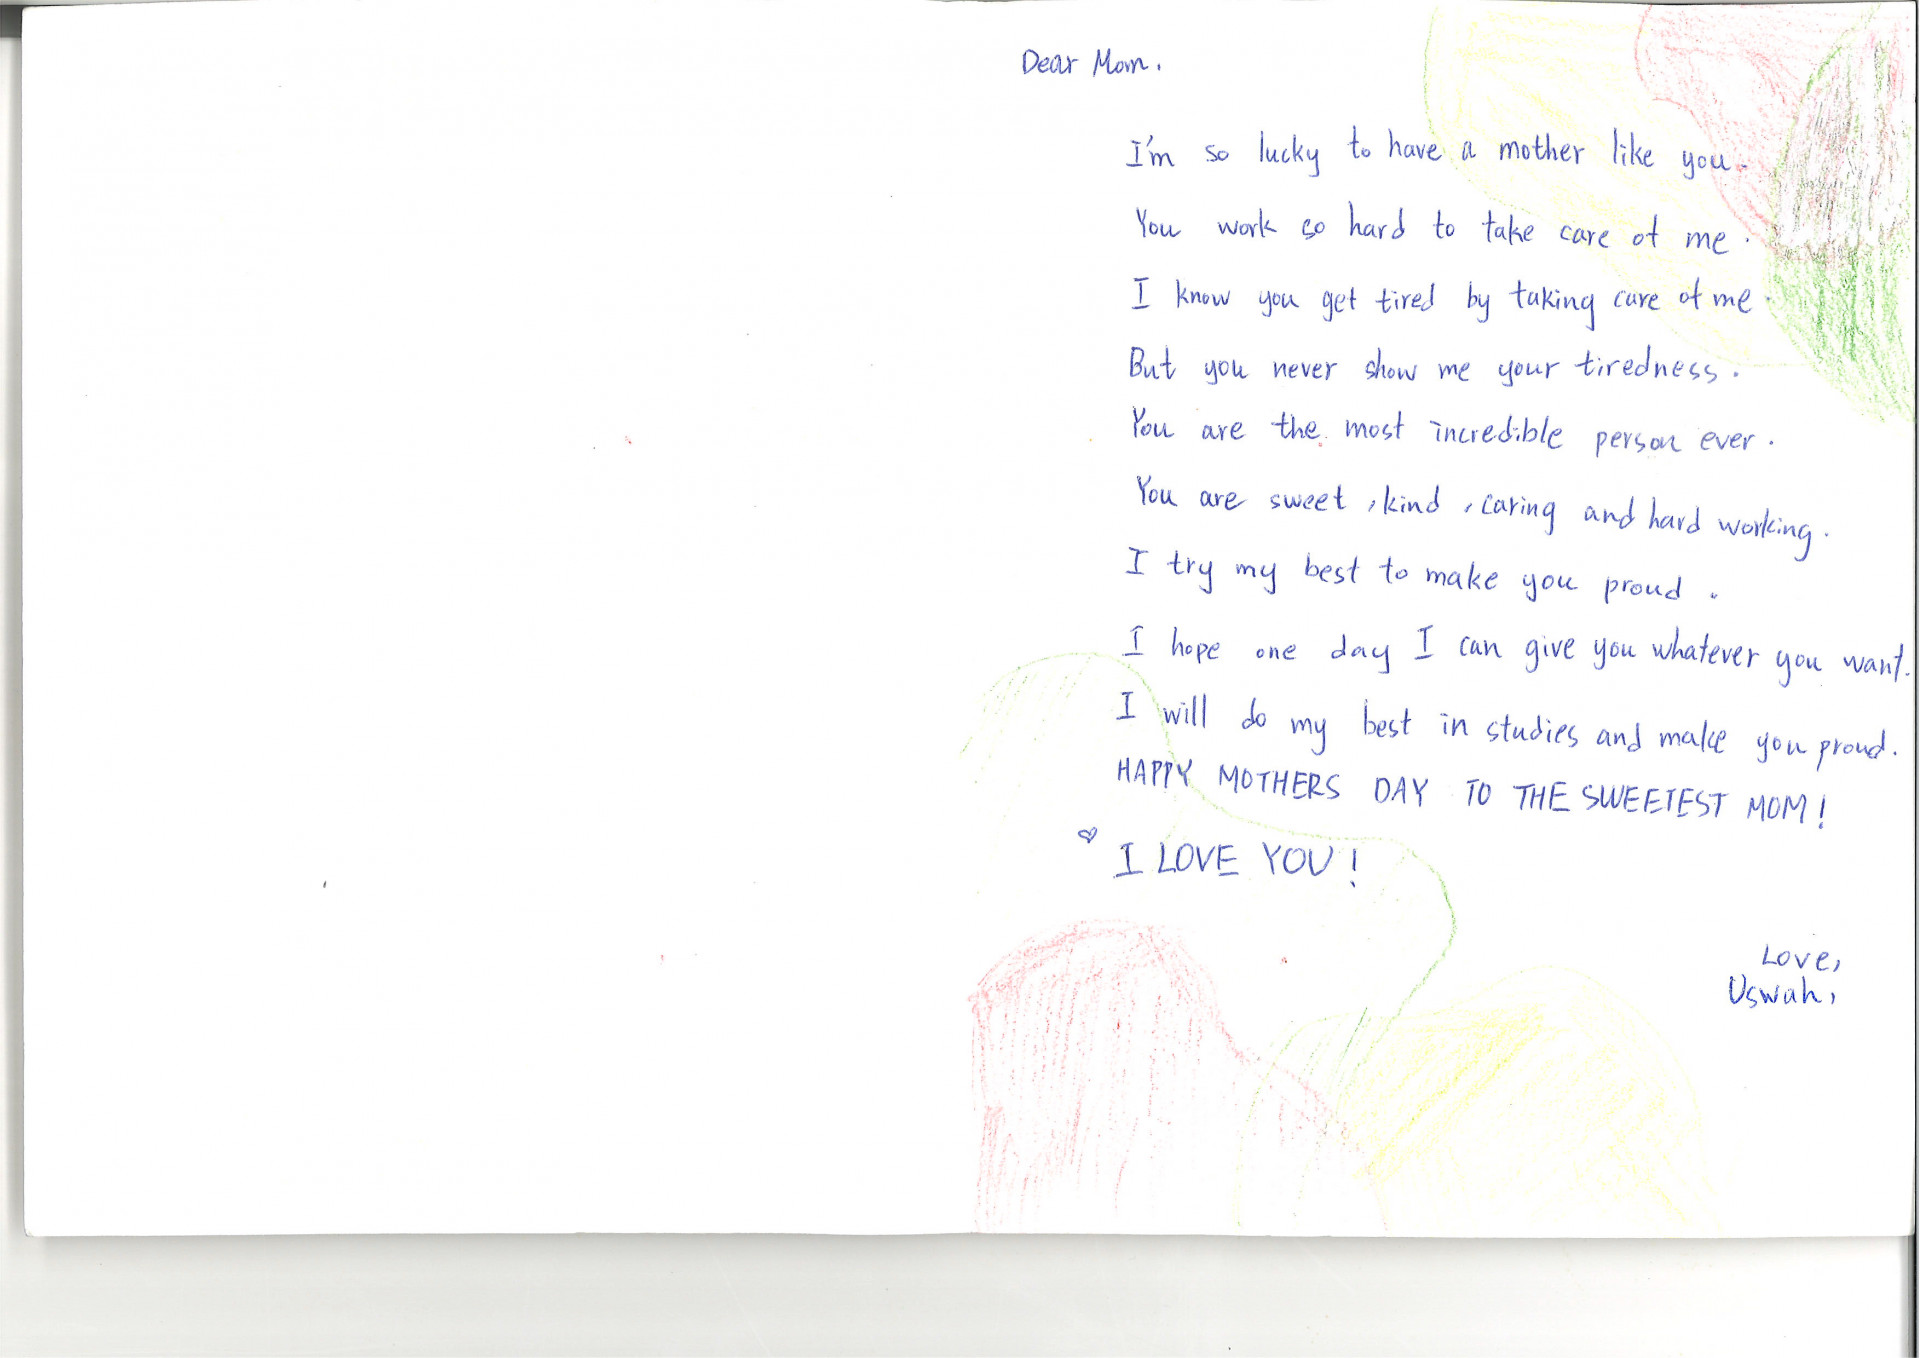 Dear Mom.
I'm so lucky to have a mother like you.
You work so hard to take care of me.
I know you get tired by taking care of me.
But you never show me your tiredness.
You are the most incredible person ever.
You are sweet, kind, caring and hard working.
I try my best to make you proud.
I hope one day I can give you whatever you want.
I will do my best in studies and make you proud.
HAPPY MOTHERS DAY TO THE SWEETEST MOM!
I LOVE YOU!
Love,
Uswah,